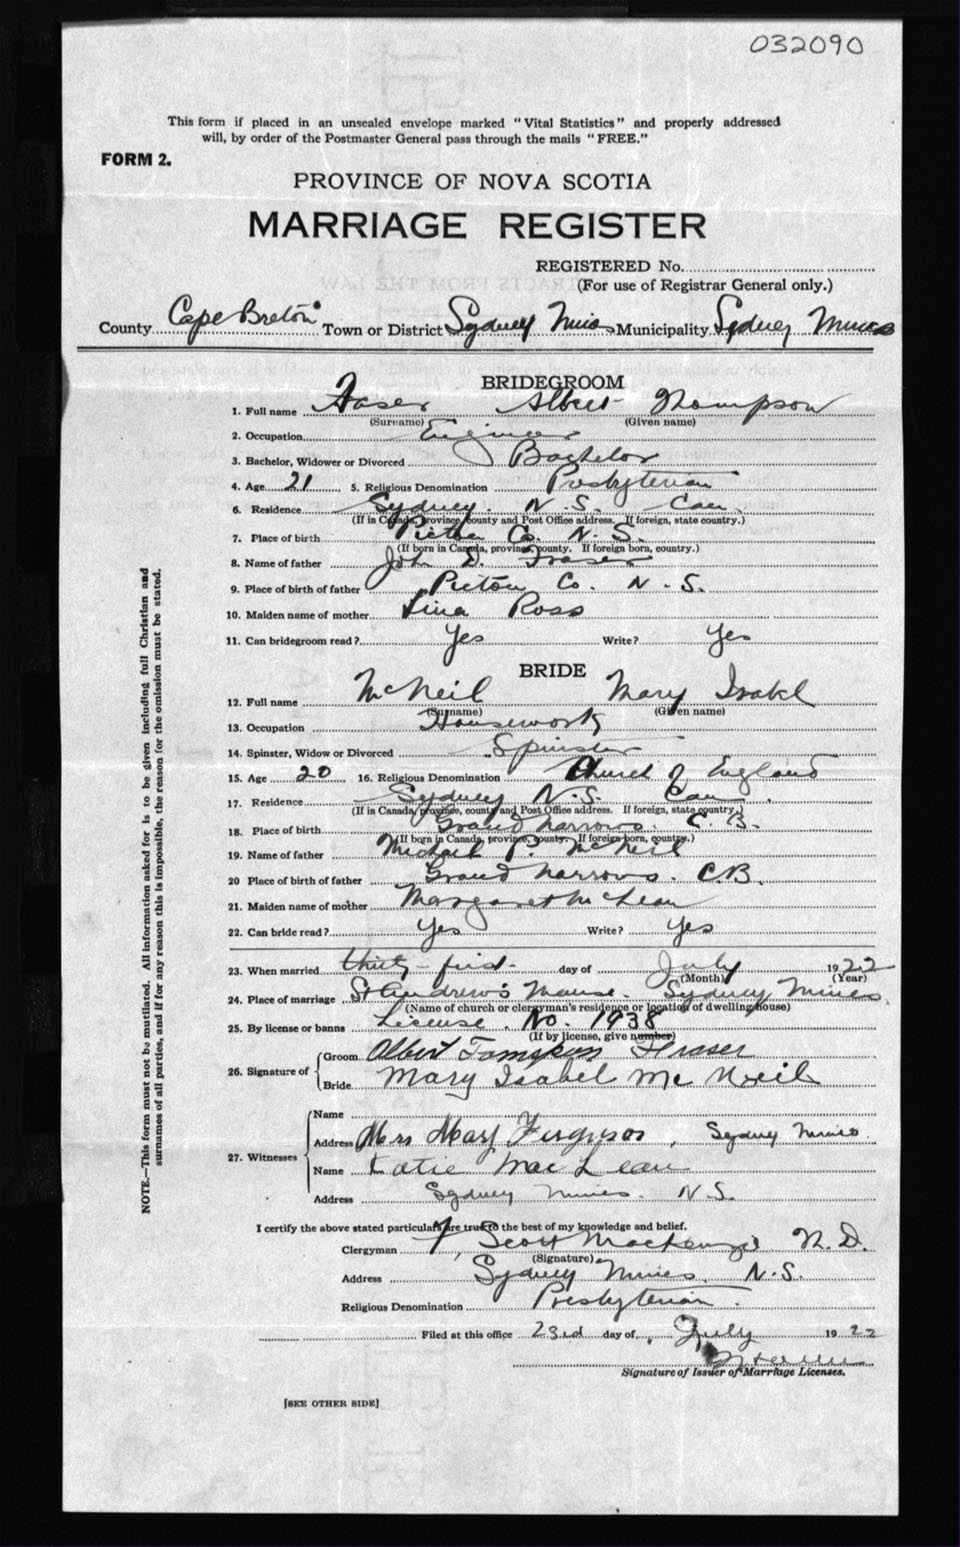 032090
This form if placed in an unsealed envelope marked "Vital Statistics" and properly addressed
will, by order of the Postmaster General pass through the mails "FREE."
FORM 2.
PROVINCE OF NOVA SCOTIA
MARRIAGE REGISTER
REGISTERED No.
(For use of Registrar General only.)
County Cape Breton Town or District Sydney Mines Municipality Sydney Mines
BRIDEGROOM
1. Full name Fraser Albert Thompson
(Surname) (Given name)
2. Occupation
3. Bachelor, Widower or Divorced Bachelor
4. Age 21 5. Religious Denomination Presbyterian
6. Residence Sydney. N.S. Can.
(If in Canada, province, county and Post Office address. If foreign, state country.)
7. Place of birth Pictou Co. N.S.
(If born in Canada, province, county. If foreign born, country.)
8. Name of father John D. Fraser
9. Place of birth of father Pictou Co. N.S.
10. Maiden name of mother Lina Ross
11. Can bridegroom read? Yes Write? Yes
BRIDE
12. Full name McNeil Mary Isabel
(Surname) (Given name)
13. Occupation Housework
14. Spinster, Widow or Divorced Spinster
15. Age 20 16. Religious Denomination Church of England
17. Residence Sydney N.S. Can.
(If in Canada, province, county and Post Office address. If foreign, state country.)
18. Place of birth Grand Narrows. C.B.
(If born in Canada, province, county. If foreign born, country.)
19. Name of father Michael P. McNeil
20 Place of birth of father Grand Narrows. C.B.
21. Maiden name of mother Margaret McLean
22. Can bride read? Yes Write? Yes
23. When married thirty-first day of July 1922
(Month) (Year)
24. Place of marriage St Andrew's Manse. Sydney Mines.
(Name of church or clergyman's residence or location of dwelling house)
25. By license or banns License. No. 1938
(If by license, give number)
26. Signature of Groom Albert Fraser
Bride Mary Isabel McNeil
27. Witnesses Name
Address Mrs Mary Ferguson, Sydney Mines.
Name Katie MacLean
Address Sydney Mines. N.S.
I certify the above stated particulars are true to the best of my knowledge and belief.
Clergyman F. Scott Mackenzie
(Signature)
Address Sydney Mines. N.S.
Religious Denomination Presbyterian.
Filed at this office 23rd day of July 1922
Signature of Issuer of Marriage Licenses.
[SEE OTHER SIDE]
NOTE.—This form must not be mutilated. All information asked for is to be given including full Christian and
surnames of all parties, and if for any reason this is impossible, the reason for the omission must be stated.